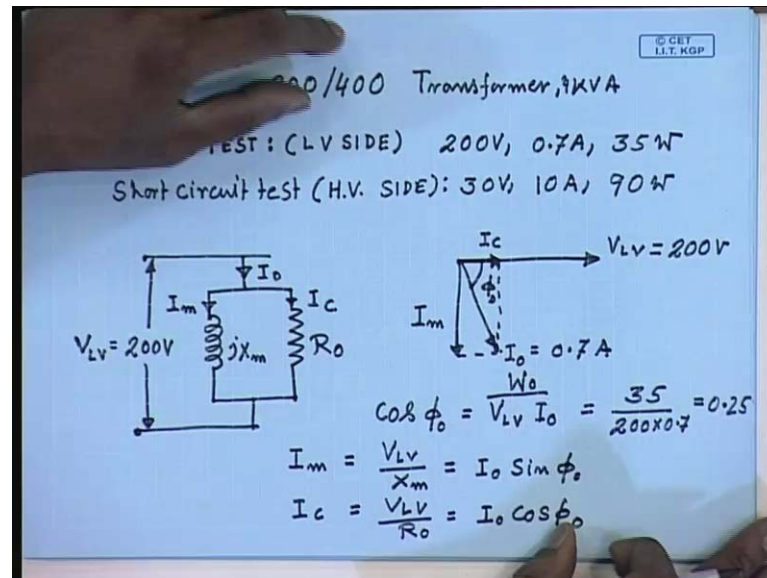 © CET
I.I.T. KGP
/400 Transformer, 4KVA
TEST : (LV SIDE) 200V, 0.7A, 35W
Short circuit test (H.V. SIDE): 30V, 10A, 90W
I₀
I_m
I_c
V_LV = 200V
jX_m
R₀
I_c
V_LV = 200V
ϕ₀
I_m
I₀ = 0.7A
cos ϕ₀ = W₀ / (V_LV I₀) = 35 / (200×0.7) = 0.25
I_m = V_LV / X_m = I₀ Sin ϕ₀
I_c = V_LV / R₀ = I₀ cos ϕ₀